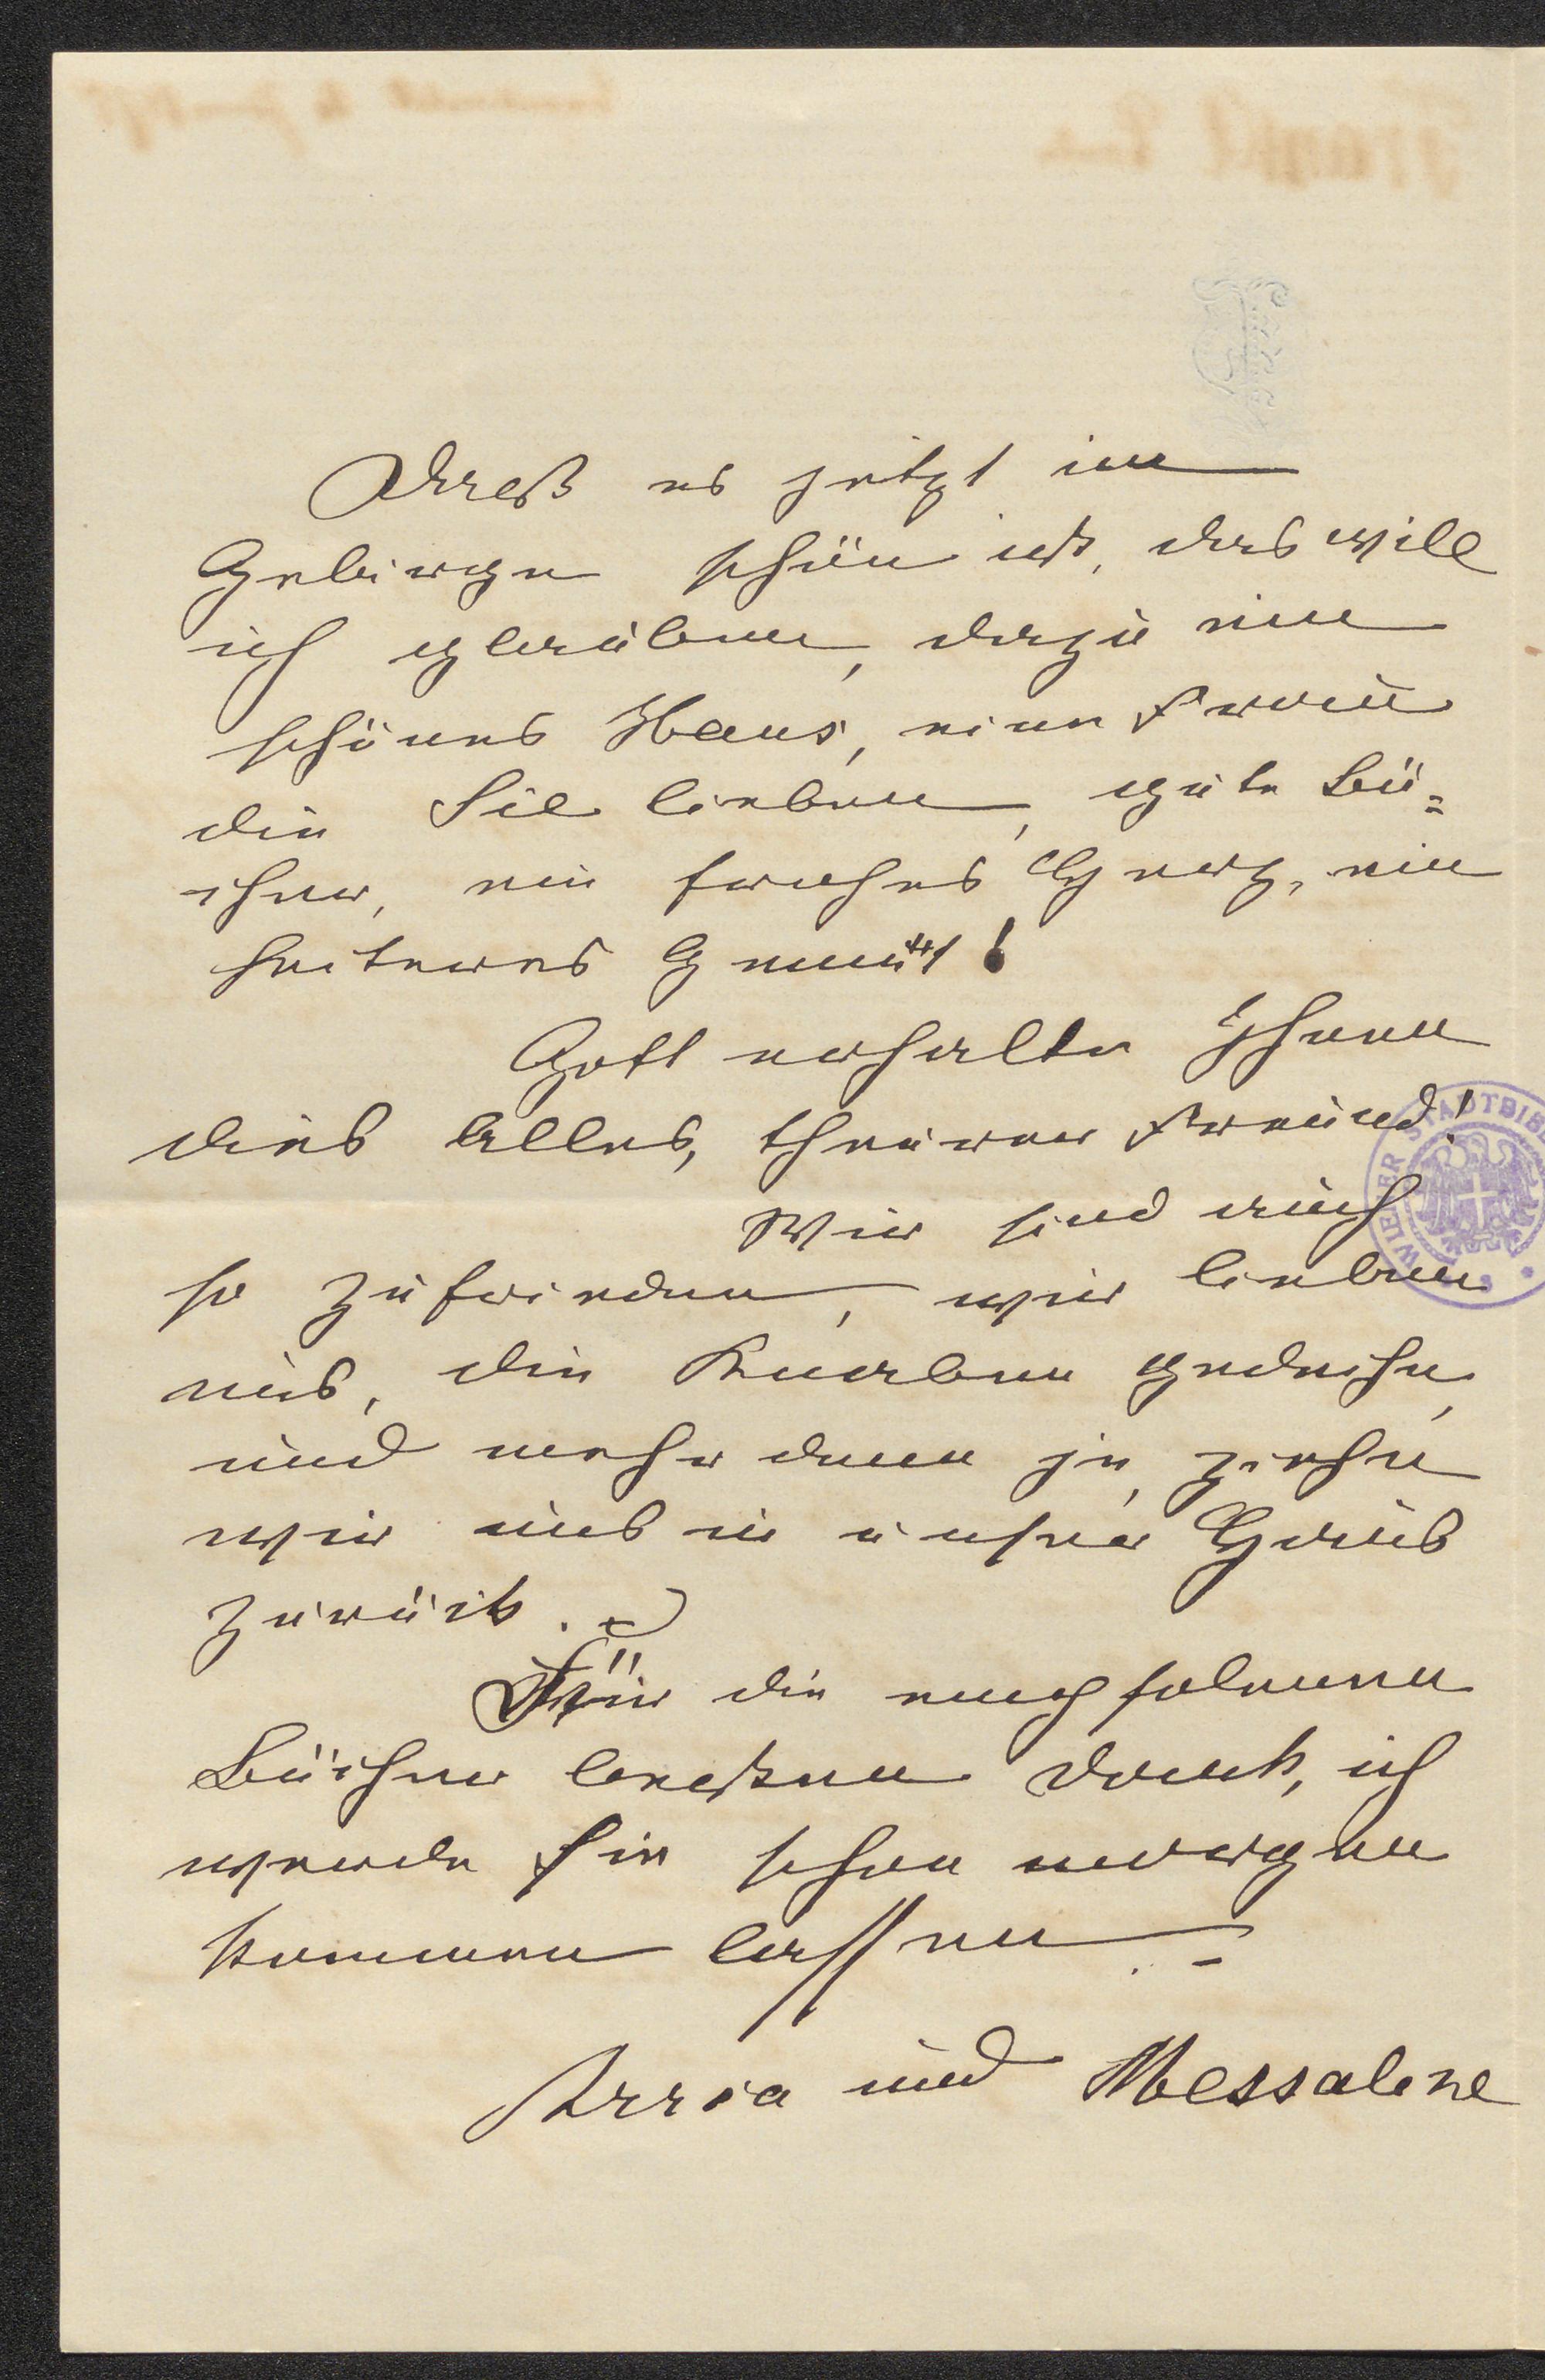 Daß es jetzt im
Gebirge schön ist, das will
ich glauben, dazu ein
schönes Haus, eine Frau
die Sie lieben, gute Bü=
cher, ein frohes Herz, ein
heiteres Gemüt!
Gott erhalte Ihnen
dies Alles, theurer Freund!
Wir sind auch
so zufrieden, wir lieben
uns, die Knaben gedeihn,
und mehr denn je, ziehn
wir uns in unser Haus
zurück.
Für die empfolenen
Bücher besten Dank, ich
werde sie schon morgen
kommen lassen. –
Arria und Messaline
WIENER STADTBIB